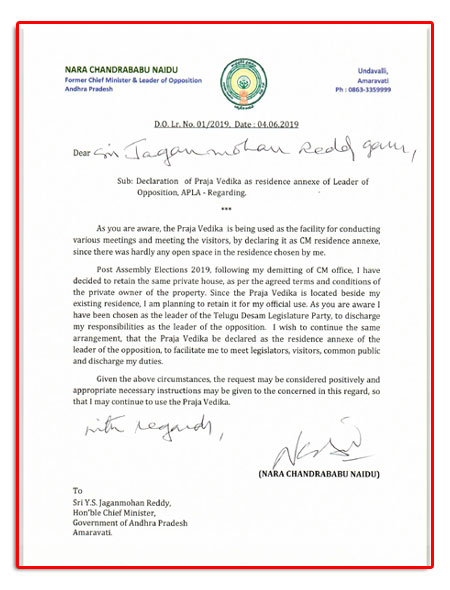 NARA CHANDRABABU NAIDU
Former Chief Minister & Leader of Opposition
Andhra Pradesh
Undavalli,
Amaravati
Ph : 0863-3359999
D.O. Lr. No. 01/2019, Date : 04.06.2019
Dear Sri Jagan mohan Reddy garu,
Sub: Declaration of Praja Vedika as residence annexe of Leader of
Opposition, APLA - Regarding.
***
As you are aware, the Praja Vedika is being used as the facility for conducting
various meetings and meeting the visitors, by declaring it as CM residence annexe,
since there was hardly any open space in the residence chosen by me.
Post Assembly Elections 2019, following my demitting of CM office, I have
decided to retain the same private house, as per the agreed terms and conditions of
the private owner of the property. Since the Praja Vedika is located beside my
existing residence, I am planning to retain it for my official use. As you are aware I
have been chosen as the leader of the Telugu Desam Legislature Party, to discharge
my responsibilities as the leader of the opposition. I wish to continue the same
arrangement, that the Praja Vedika be declared as the residence annexe of the
leader of the opposition, to facilitate me to meet legislators, visitors, common public
and discharge my duties.
Given the above circumstances, the request may be considered positively and
appropriate necessary instructions may be given to the concerned in this regard, so
that I may continue to use the Praja Vedika.
with regards,
(NARA CHANDRABABU NAIDU)
To
Sri Y.S. Jaganmohan Reddy,
Hon'ble Chief Minister,
Government of Andhra Pradesh
Amaravati.